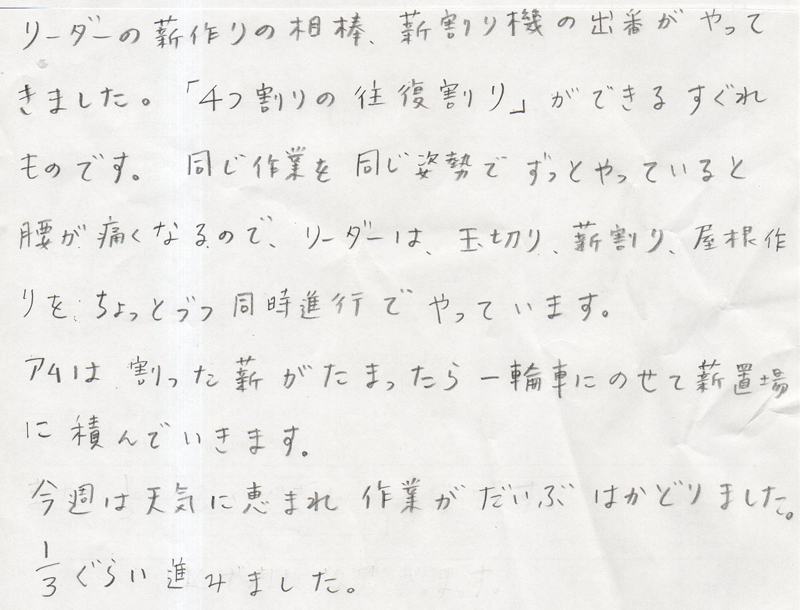 リーダーの薪作りの相棒、薪割り機の出番がやって
きました。「4つ割りの往復割り」ができるすぐれ
ものです。 同じ作業を同じ姿勢でずっとやっていると
腰が痛くなるので、リーダーは、玉切り、薪割り、屋根作
りを、ちょっとづつ同時進行でやっています。
アムは割った薪がたまったら一輪車にのせて薪置場
に積んでいきます。
今週は天気に恵まれ作業がだいぶはかどりました。
1/3ぐらい進みました。